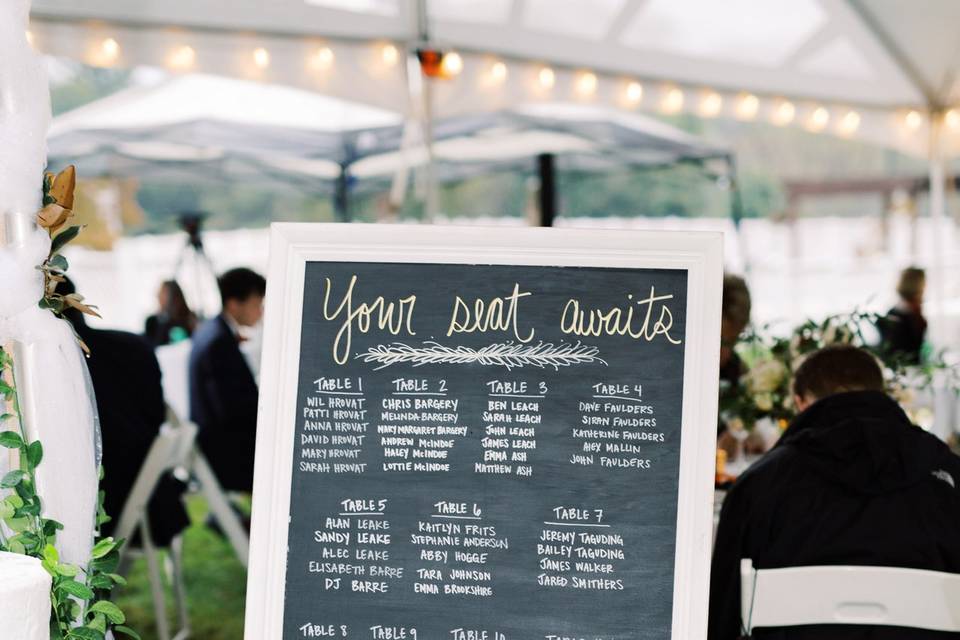 Your seat awaits
TABLE 1
WIL HROVAT
PATTI HROVAT
ANNA HROVAT
DAVID HROVAT
MARY HROVAT
SARAH HROVAT
TABLE 2
CHRIS BARGERY
MELINDA BARGERY
MARY MARGARET BARGERY
ANDREW McINDOE
HALEY McINDOE
LOTTIE McINDOE
TABLE 3
BEN LEACH
SARAH LEACH
JOHN LEACH
JAMES LEACH
EMMA ASH
MATTHEW ASH
TABLE 4
DAVE FAULDERS
SIRAN FAULDERS
KATHERINE FAULDERS
ALEX MALLIN
JOHN FAULDERS
TABLE 5
ALAN LEAKE
SANDY LEAKE
ALEC LEAKE
ELISABETH BARRE
DJ BARRE
TABLE 6
KAITLYN FRITS
STEPHANIE ANDERSON
ABBY HOGGE
TARA JOHNSON
EMMA BROOKSHIRE
TABLE 7
JEREMY TAGUDING
BAILEY TAGUDING
JAMES WALKER
JARED SMITHERS
TABLE 8
TABLE 9
TABLE 10